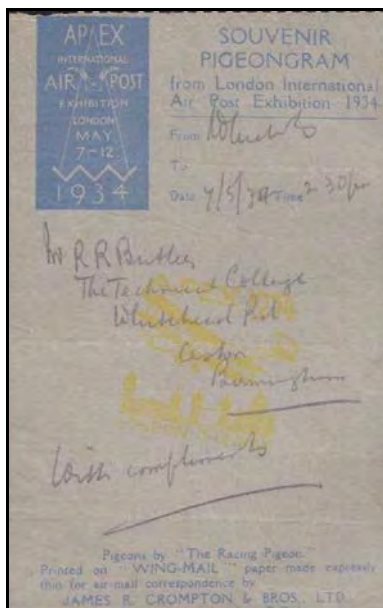 APEX
INTERNATIONAL
AIR POST
EXHIBITION
LONDON
MAY
7-12
1934
SOUVENIR
PIGEONGRAM
from London International
Air Post Exhibition 1934
From
To
Date 7/5/34 Time 2 30 pm
Mr R R Butler
The Technical College
Whitehead Rd
Aston
Birmingham
With compliments
Pigeons by "The Racing Pigeon."
Printed on "WING-MAIL" paper made expressly
thin for air-mail correspondence by
JAMES R. CROMPTON & BROS., LTD.